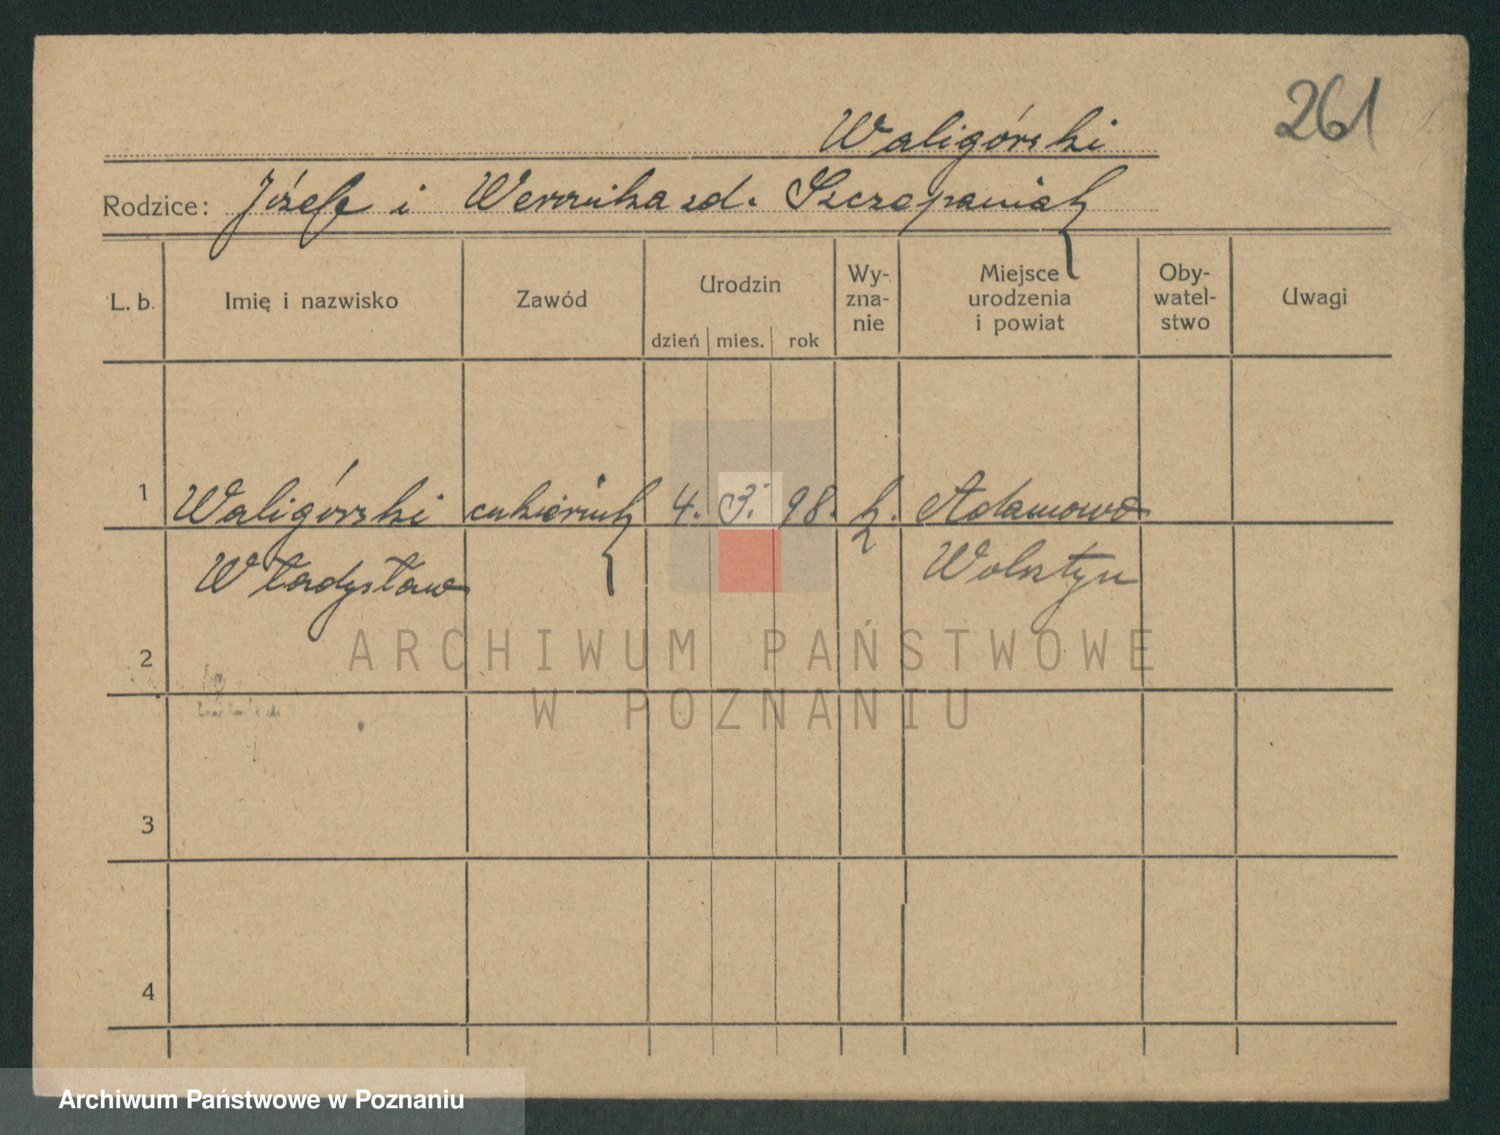 261
Waligórski
Rodzice: Józef i Weronika zd. Szczepaniak
L. b. Imię i nazwisko Zawód Urodzin dzień mies. rok Wy-zna-nie Miejsce urodzenia i powiat Oby-watel-stwo Uwagi
1 Waligórski cukiernik 4. 3. 98. k. Adamowo
Władysław Wolsztyn
2
3
4
ARCHIWUM PAŃSTWOWE
W POZNANIU
Archiwum Państwowe w Poznaniu